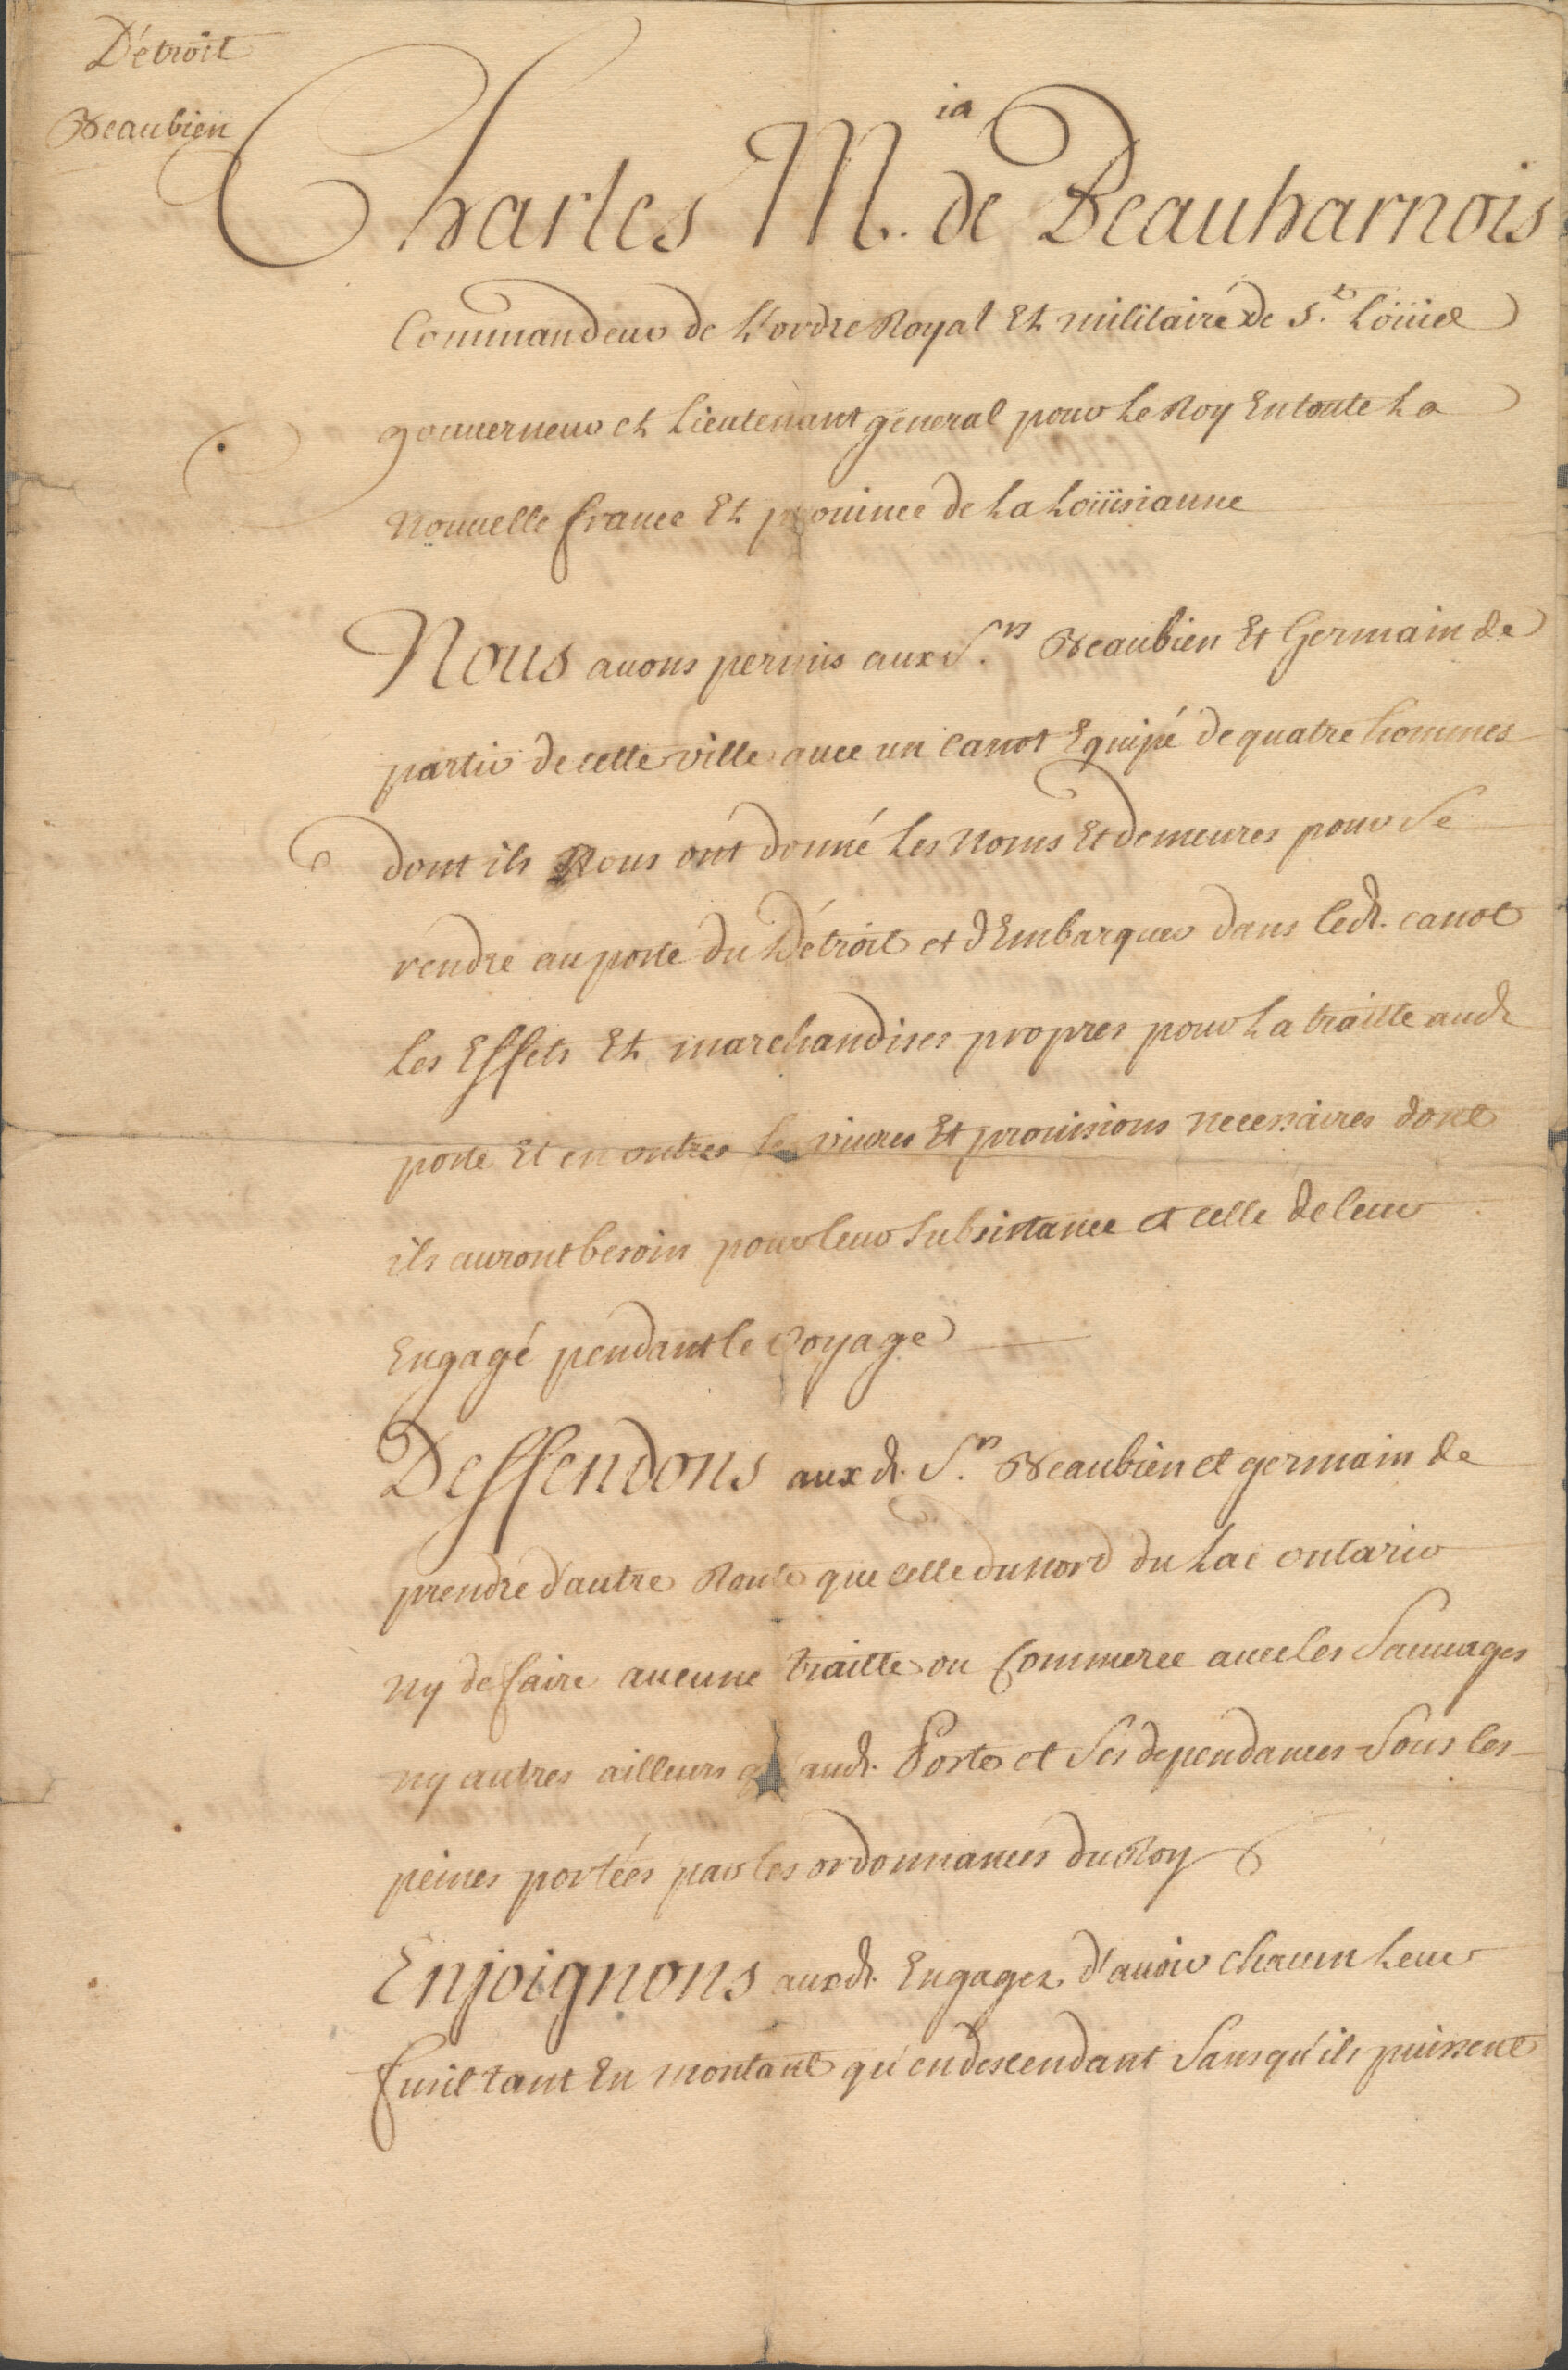 Détroit
Beaubien
Charles M.ia de Beauharnois
Commandeur de L'ordre Royal Et militaire de S.t Loüiel
gouuerneur et Lieutenant general pour Le Roy En toute La
Nouuelle france Et prouince de La Loüisianne
Nous auons permis aux S.rs Beaubien Et Germain de
partir de cette ville auec un Canot Equipé de quatre hommes
dont ils Nous ont donné Les Noms Et demeures pour Se
rendre au poste du Détroit et d'Embarquer dans led.t canot
les Effets Et marchandises propres pour La traitte aud.t
poste Et en outres les viures Et prouisions necessaires dont
ils auront besoin pour leur Subsistance et celle de leur
Engagé pendant le Voyage
Deffendons aux d.t S.rs Beaubien et germain de
prendre d'autre Route que celle du Nord du Lac ontario
Ny de faire aucune traitte ou Commerce auec les Sauuages
ny autres ailleurs aud.t Poste et Ses dependances Sous les
peines portées par les ordonnances du Roy
Enjoignons aux d.t Engagez d'auoir chacun Leur
fusil tant En montant qu'en descendant Sans qu'ils puissent